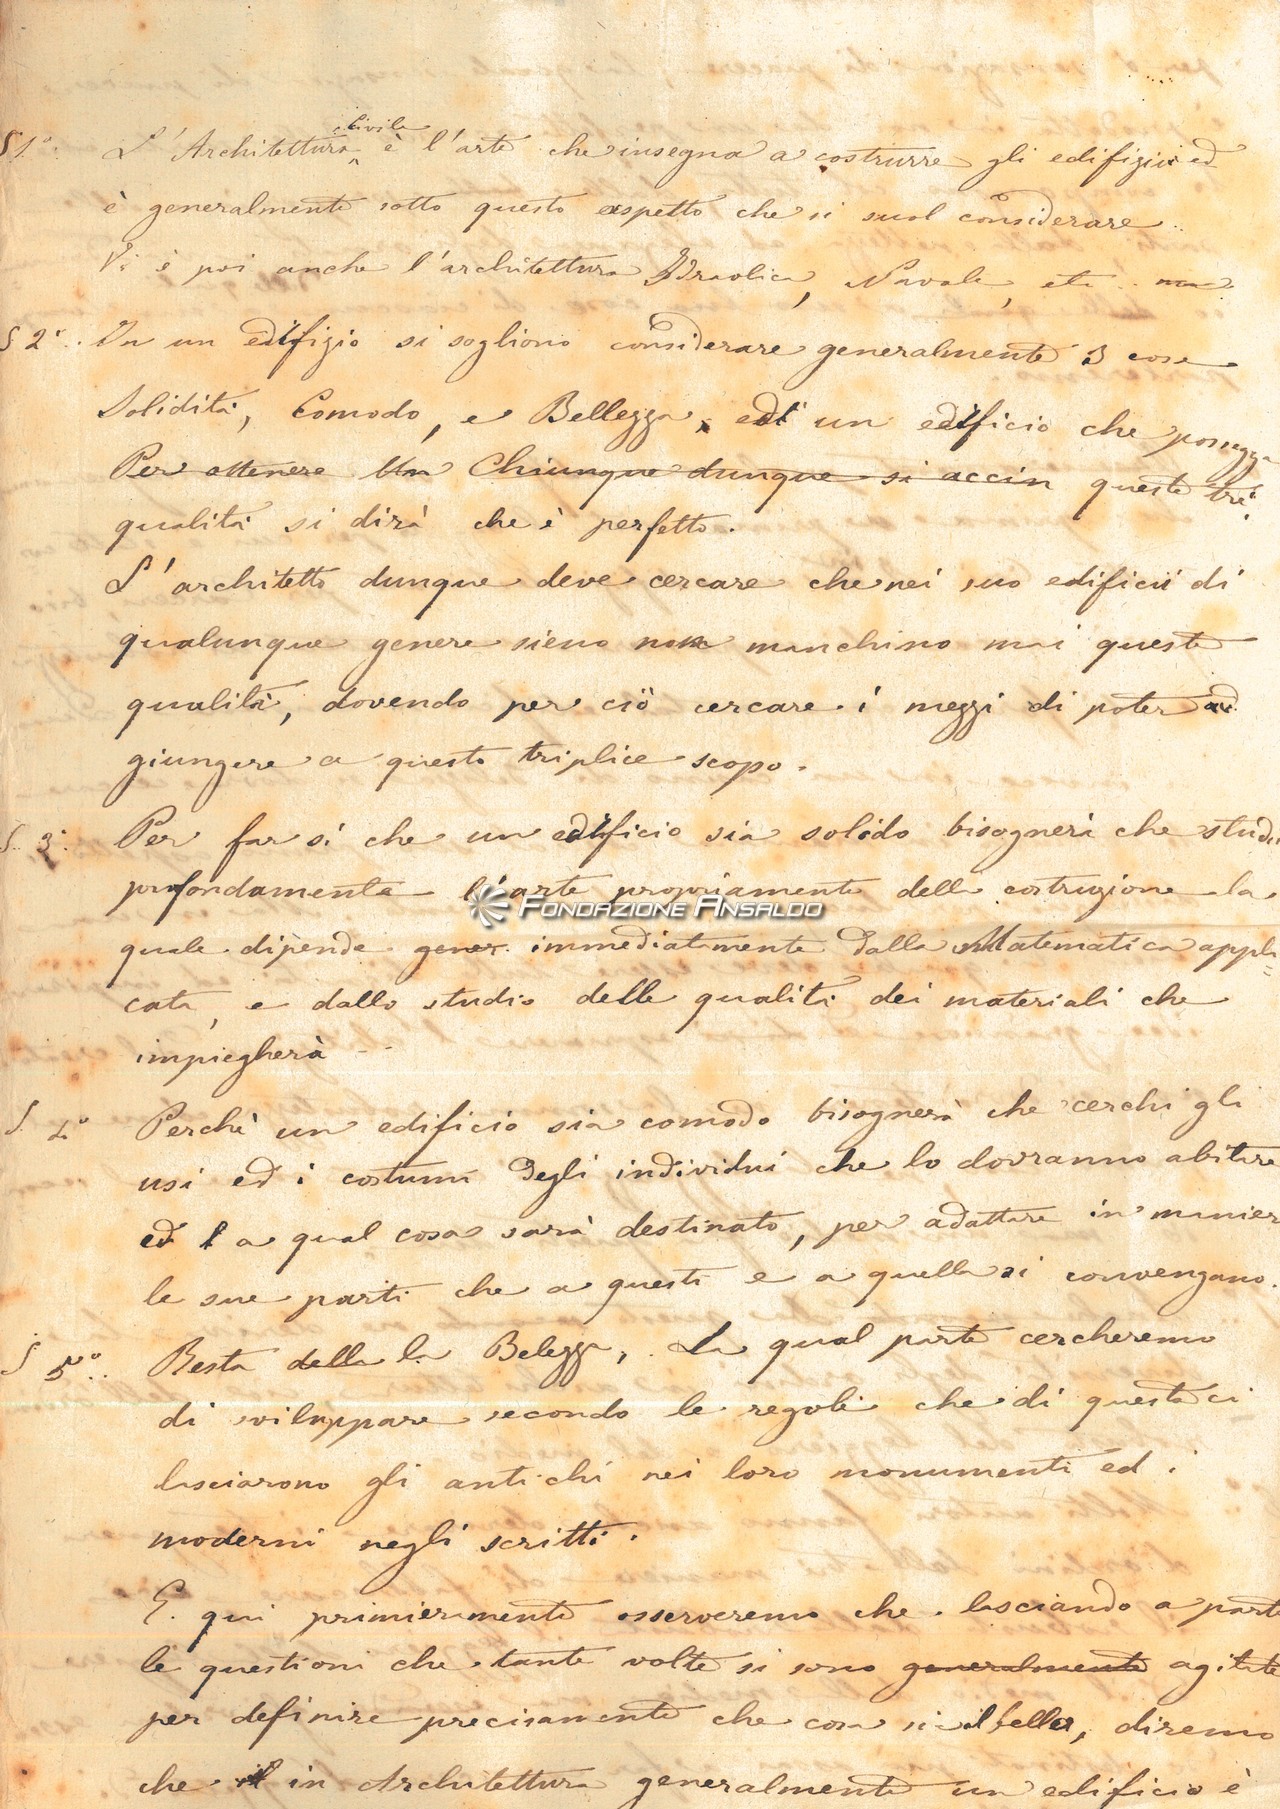 civile
§ 1° L'Architettura è l'arte che insegna a costrurre gli edifizii ed
è generalmente sotto questo aspetto che si suol considerare.
Vi è poi anche l'architettura Idraolica, Navale, etc
§ 2° In un edifizio si sogliono considerare generalmente 3 cose
Solidità, Comodo, e Bellezza, ed un edificio che possegga
Per ottenere Un Chiunque dunque si accin queste tre
qualità si dirà che è perfetto.
L'architetto dunque deve cercare che nei suo edificii di
qualunque genere sieno non manchino mai queste
qualità, dovendo per ciò cercare i mezzi di poter ad
giungere a questo triplice scopo.
§. 3° Per far sì che un edificio sia solido bisognerà che studi
profondamente l'arte propriamente della costruzione la
FONDAZIONE ANSALDO
quale dipende gener. immediatamente dalla Matematica appli=
cata, e dallo studio delle qualità dei materiali che
impiegherà
§. 4° Perchè un edificio sia comodo bisognerà che cerchi gli
usi ed i costumi degli individui che lo dovranno abitare
ed a qual cosa sarà destinato, per adattare in manier
le sue parti che a questi e a quella si convengano.
§ 5° Resta della la Belezza, La qual parte cercheremo
di sviluppare secondo le regole che di queste ci
lasciarono gli antichi nei loro monumenti ed i
moderni negli scritti.
E qui primieramente osserveremo che lasciando a parte
le questioni che tante volte si sono generalmente agitate
per definire precisamente che cosa sia il bello, diremo
che il in Architettura generalmente un edificio è